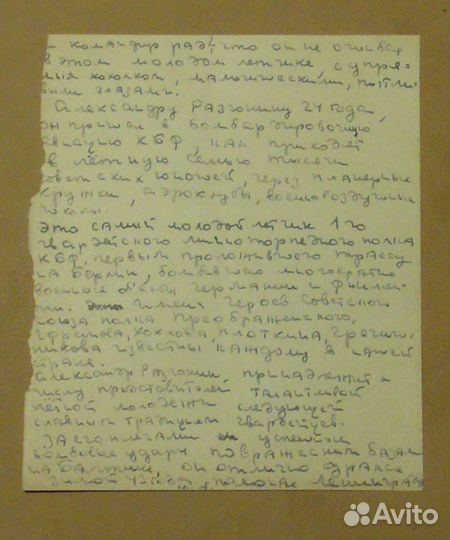 и командир рад, что он не ошибся
в этом молодом летчике с упря-
мым хохолком, мальчишескими, пытли-
выми глазами.
Александру Разгонину 24 года,
он пришел в бомбардировочную
авиацию КБФ, как приходят
в лётную семью тысячи
советских юношей, через планерные
кружки, аэроклубы, военно воздушные
школы.
Это самый молодой летчик 1го
гвардейского минно торпедного полка
КБФ. первым проложившего трассу
на Берлин, бомбившего многократно
военные об'екты Германии и Финлян-
дии. Имена героев Советского
союза полка Преображенского,
Ефремова, Хохлова, Плоткина, Гречиш-
никова известны каждому в нашей
стране.
Александр Разгонин принадлежит к
числу представителей талантливой
лётной молодежи следующей
славным традициям гвардейцев.
За его плечами успешные
бомбовые удары по вражеским базам
на Балтике, он отлично дрался
зимой 42 года, помогая Ленинграду
Avito